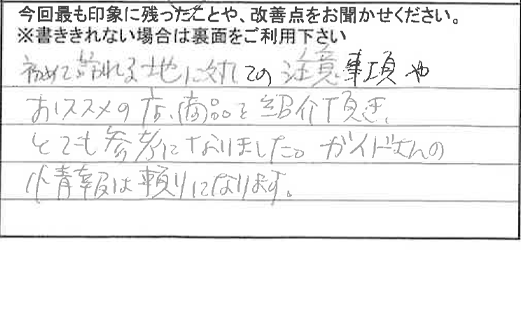 今回最も印象に残ったことや、改善点をお聞かせください。
※書ききれない場合は裏面をご利用下さい
初めて訪れる土地に対しての注意事項や
おススメの店、商品を紹介頂き、
とても参考になりました。ガイドさんの
情報は頼りになります。